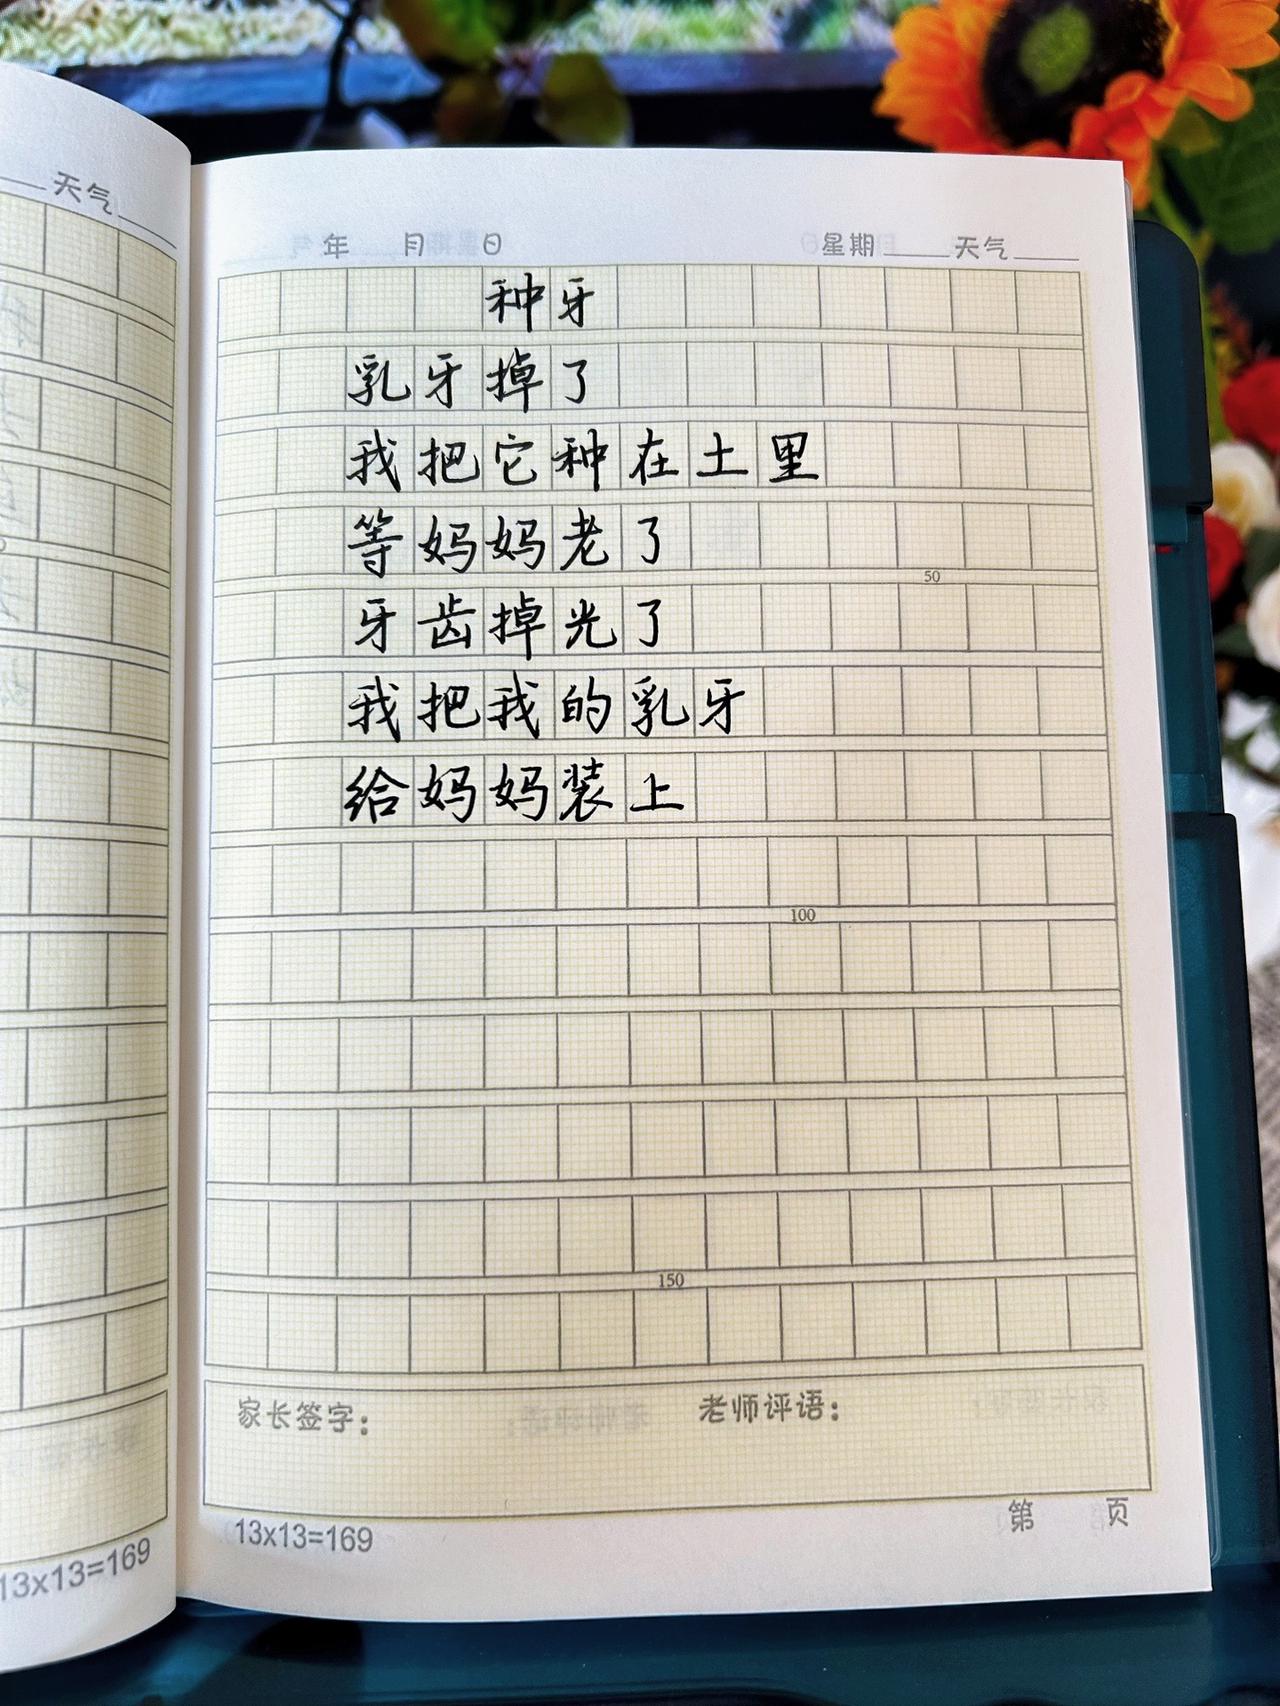 天气
年 月 日 星期 天气
种牙
乳牙掉了
我把它种在土里
等妈妈老了
50
牙齿掉光了
我把我的乳牙
给妈妈装上
100
150
家长签字： 老师评语：
第 页
13x13=169
13x13=169